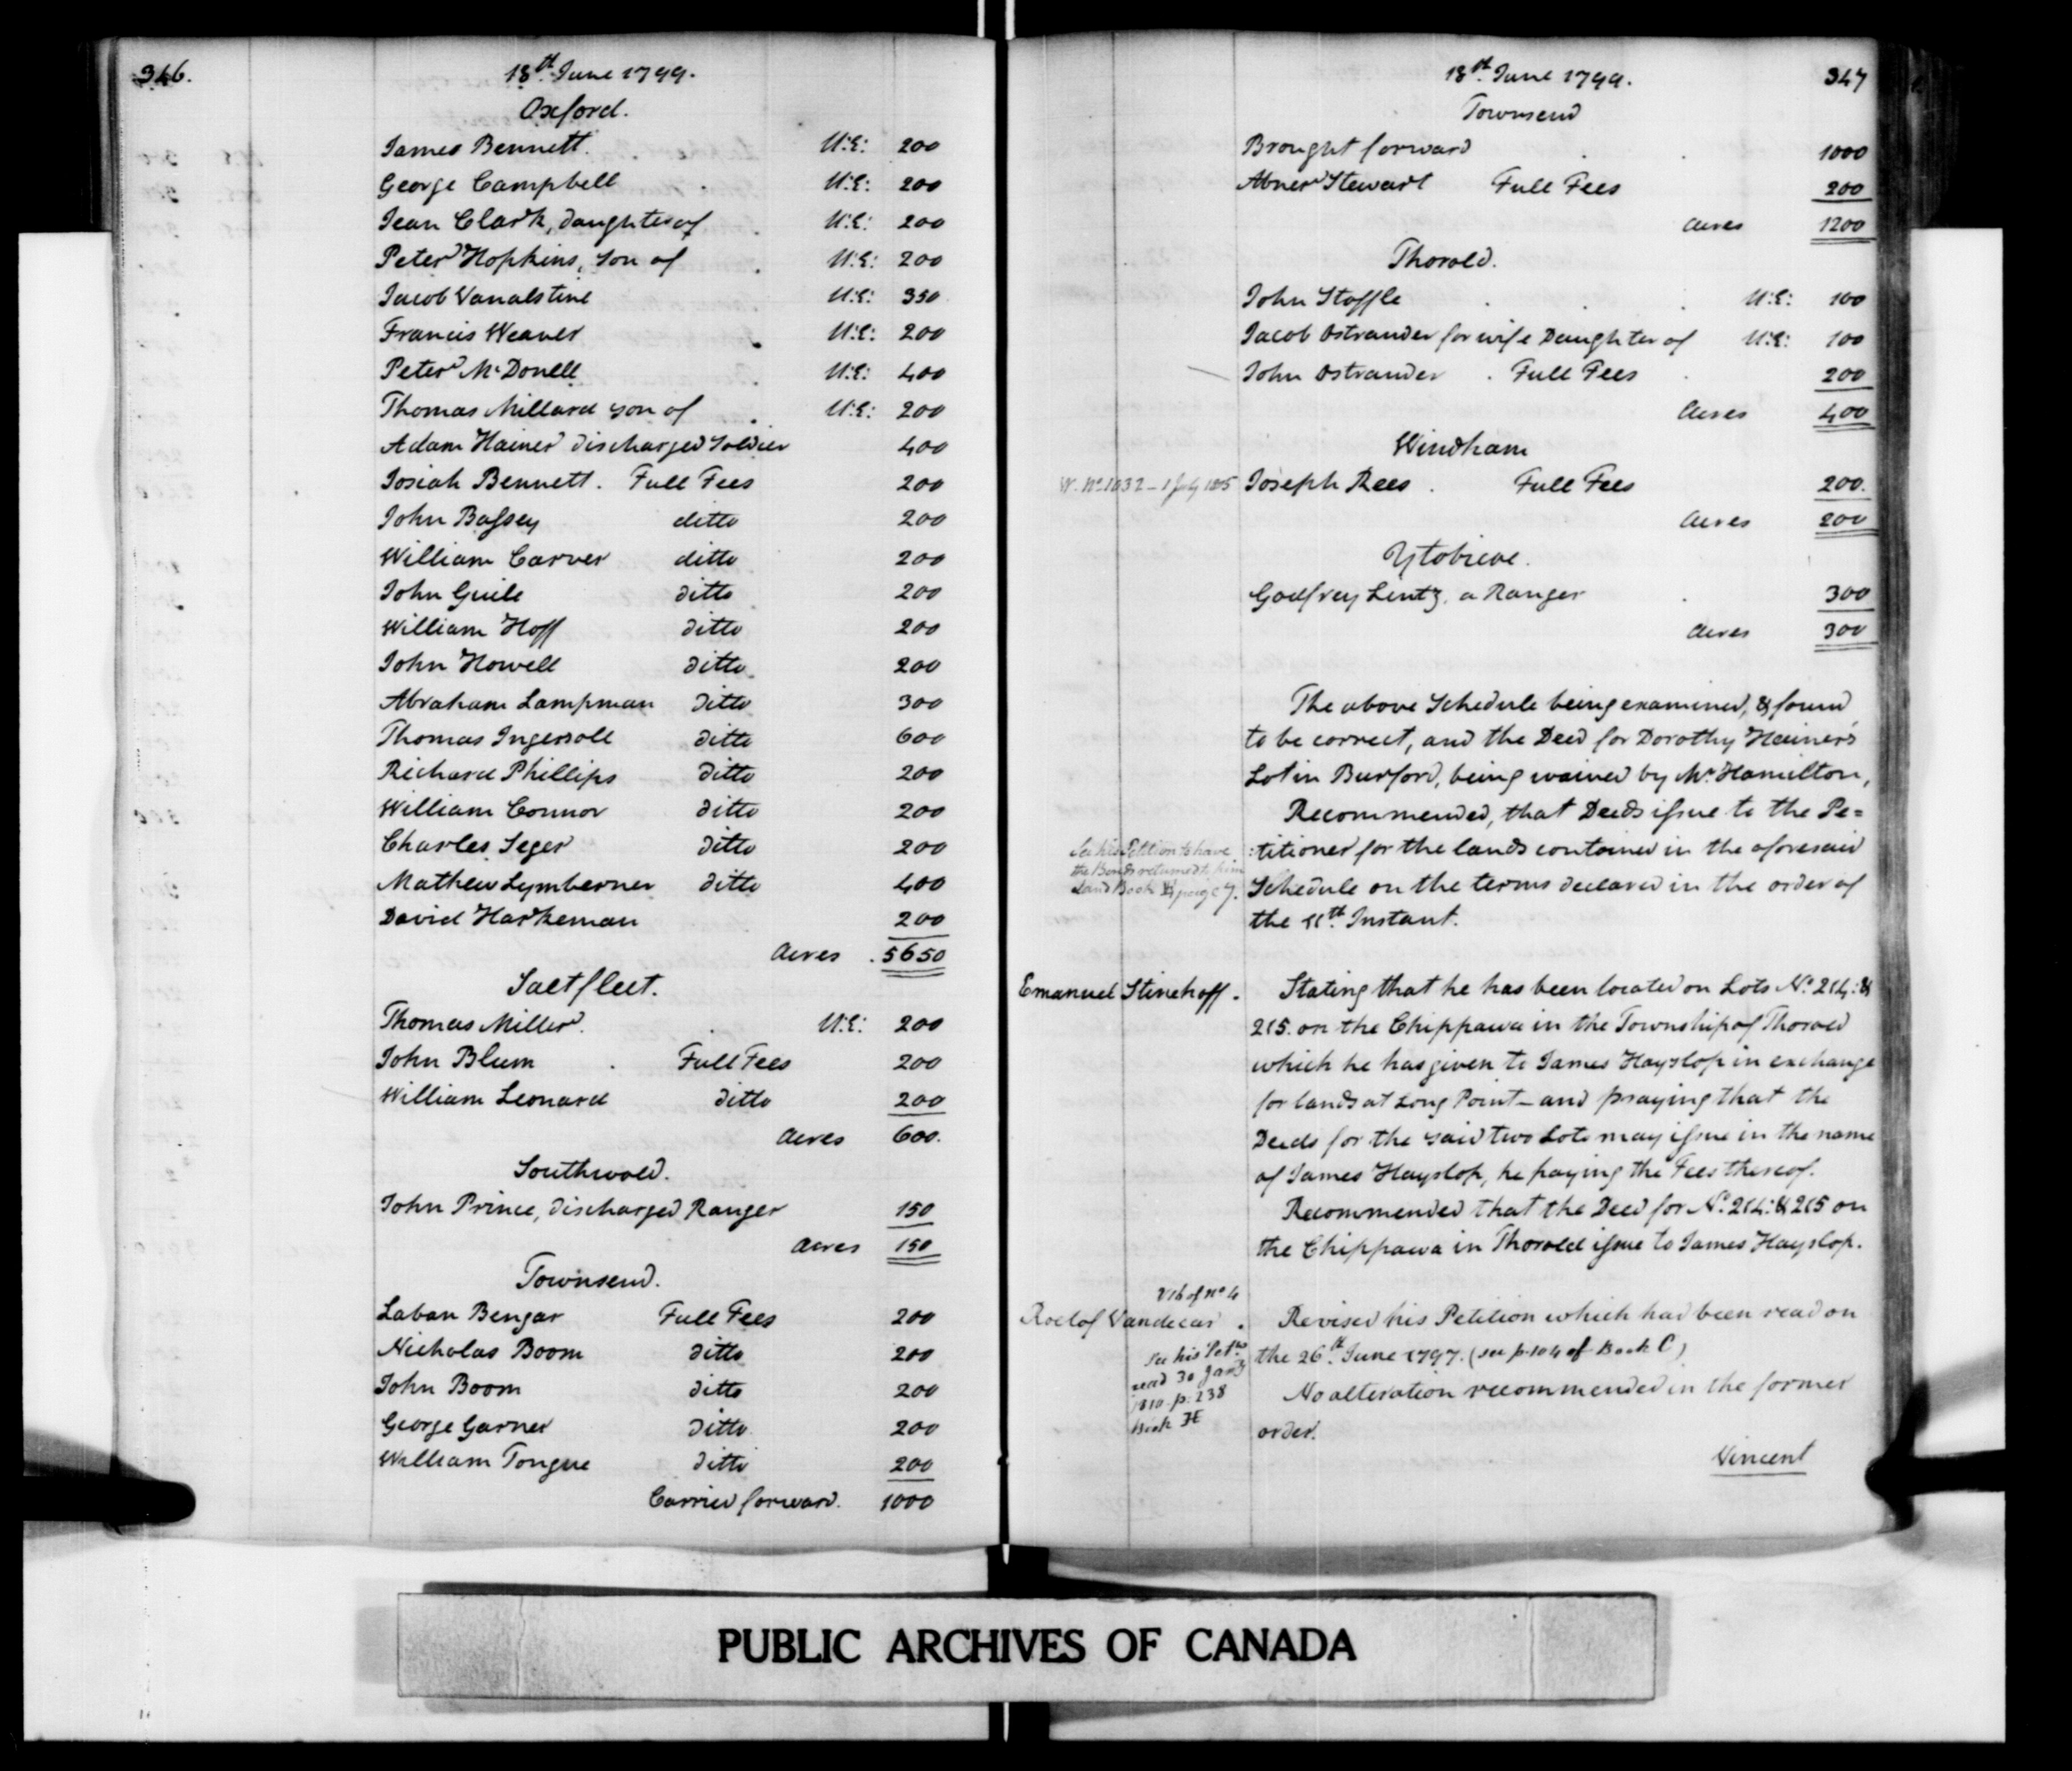 346.
18th June 1799.
Oxford.
James Bennett. U:E: 200
George Campbell . U:E: 200
Jean Clark, daughter of U:E: 200
Peter Hopkins, son of . U:E: 200
Jacob Vanalstine U:E: 350
Francis Weaver U:E: 200
Peter McDonell U:E: 400
Thomas Millard son of . U:E: 200
Adam Hainer discharged Soldier 400
Josiah Bennett. Full Fees 200
John Bassey ditto 200
William Carver ditto 200
John Guile ditto 200
William Hoff ditto 200
John Howell ditto. 200
Abraham Lampman ditto 300
Thomas Ingersoll ditto 600
Richard Phillips ditto 200
William Connor ditto 200
Charles Seger ditto 200
Mathew Lymberner ditto 400
David Harkeman 200
Acres . 5650
Saltfleet.
Thomas Miller. . U:E: 200
John Blum . Full Fees 200
William Leonard ditto 200
Acres 600.
Southwold.
John Prince, discharged Ranger 150
Acres 150
Townsend.
Laban Bengar Full Fees 200
Nicholas Boom ditto 200
John Boom ditto 200
George Garner ditto 200
William Tongue ditto 200
Carried forward. 1000
18th June 1799. 347
Townsend
Brought forward . . 1000
Abner Stewart Full Fees 200
Acres 1200
Thorold.
John Stoffle . . . U:E: 100
Jacob Ostrander for wife Daughter of U:E: 100
John Ostrander . Full Fees . 200
Acres 400
Windham
W. No. 1032 - 1 July 1805 Joseph Rees . Full Fees 200.
Acres 200
Ytobicoe.
Godfrey Lentz, a Ranger . 300
Acres 300
The above Schedule being examined, & found
to be correct, and the Deed for Dorothy Hainer's
Lot in Burford, being waived by Mr. Hamilton,
Recommended, that Deeds issue to the Pe=
:titioner for the lands contained in the aforesaid
Schedule on the terms declared in the order of
the 11th. Instant.
See his Petition to have
the Bonds returned to him
Land Book page 7.
Emanuel Stinehoff . Stating that he has been located on Lots No. 214: &
215. on the Chippawa in the Township of Thorold
which he has given to James Hayslop in exchange
for lands at Long Point - and praying that the
Deeds for the said two Lots may issue in the name
of James Hayslop, he paying the Fees thereof.
Recommended that the Deed for No. 214: & 215 on
the Chippawa in Thorold issue to James Hayslop.
V16 of no 4
Roelof Vandecar . Revised his Petition which had been read on
the 26th. June 1797. (see p. 104 of Book C)
No alteration recommended in the former
order.
See his Petn
read 30 Jany
1810 p. 238
Book
Vincent
PUBLIC ARCHIVES OF CANADA